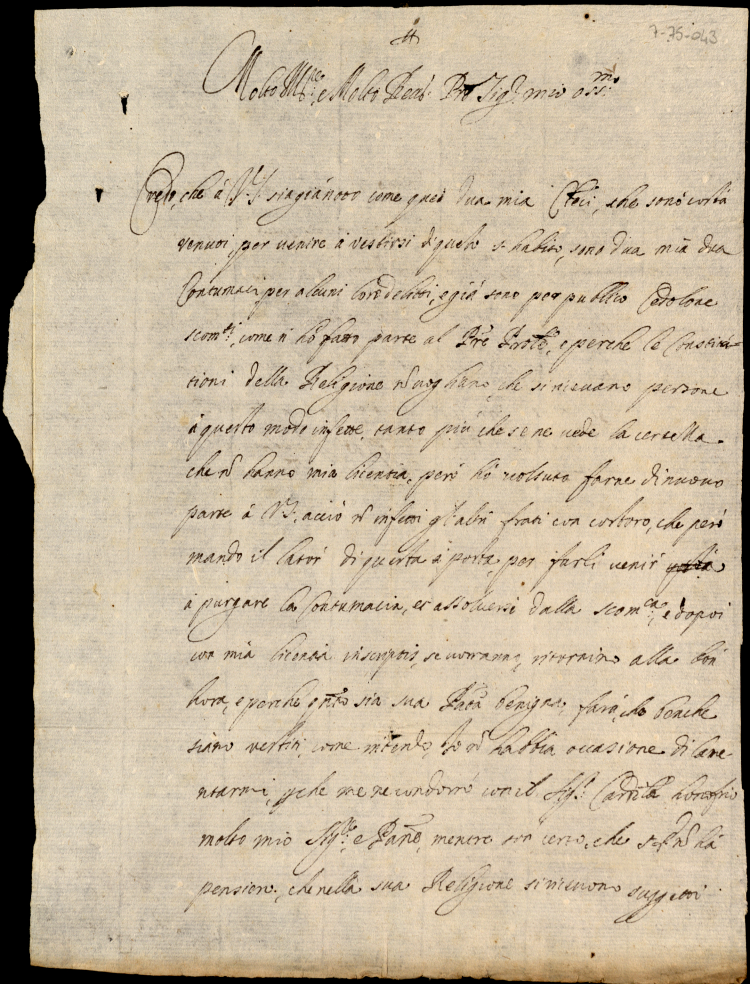 7-75-043
Molto Mag.co e Molto Rev. Pre Sig.r mio oss.mo
Credo, che à V.S. sia già noto come quei dua mia Clerici, che sono costà
venuti, per venire à vestirsi di questo s. habito, sono dua mia dua
Contumaci per alcuni loro delitti, e già sono per publico Cedolone
scom.ti, come n' hò fatto parte al Pre Prov.le, e perche le Constitu=
tioni della Religione nõ vogliano, che si ricevano persone
à questo modo infette, tanto più che se ne vede la certezza
che nõ hanno mia licentia, però hò voluto farne di nuovo
parte à V.S. acciò nõ infetti gl'altri frati con costoro, che però
mando il lator' di questa à posta, per farli venir'
à purgare la Contumacia, et assolversi dalla scom.ca, e dopoi
con mia licentia in scriptis, se vorranno, ritornino alla bon'
hora, e perche sia sua Pat.tà benigna farà, che benche
siano vestiti, come intendo, io nõ habbia occasione di lame
ntarmi, perche me ne condorrò con il Sig.r Card.le honofrio
molto mio Sig.re e Pañe, mentre son certo, che nõ hà
pensiero, che nella sua Religione si ricevono suggetti